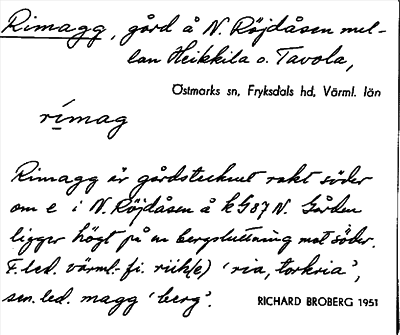 Rimagg, gård å N. Röjdåsen mel-
lan Heikkila o. Tavola,
Östmarks sn, Fryksdals hd, Värml. län
rímag
Rimagg är gårdstecknet rakt söder
om e i N. Röjdåsen å kG87N. Gården
ligger högt på en bergsluttning mot söder.
F. led. värml.-fi. riik(e) 'ria, torkria',
sen. led. magg 'berg'.
RICHARD BROBERG 1951